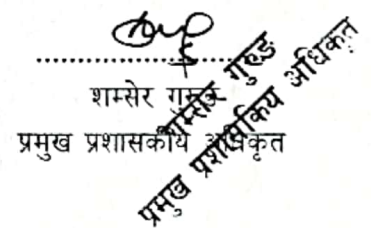 शम्सेर गुरुङ
प्रमुख प्रशासकीय अधिकृत
शम्सेर गुरुङ
प्रमुख प्रशासकिय अधिकृत